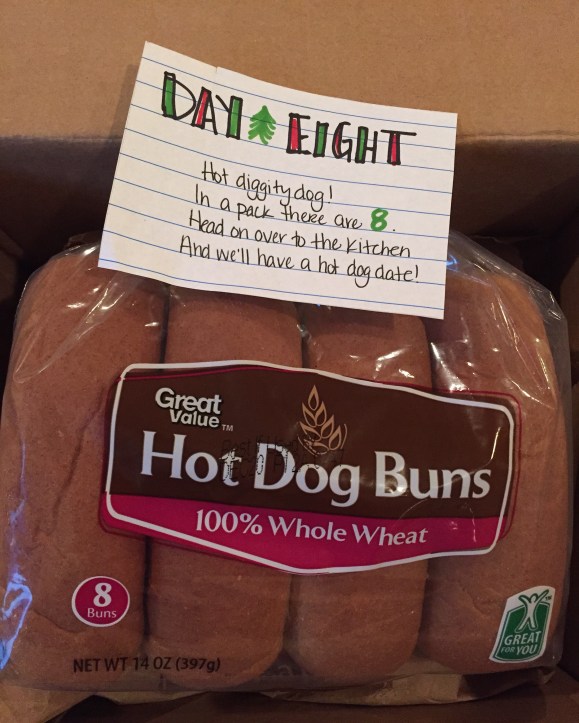 DAY EIGHT
Hot diggity dog!
In a pack there are 8.
Head on over to the kitchen
And we'll have a hot dog date!
Great
Value TM
Hot Dog Buns
100% Whole Wheat
8
Buns
GREAT
FOR YOU
NET WT 14 OZ (397g)